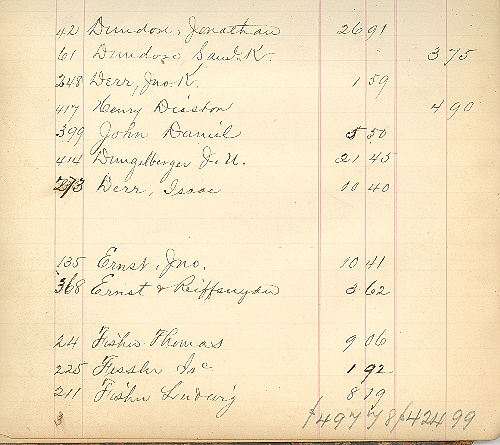 42 Dundore, Jonathan 26 91
61 Dundore Saml. K. 3 75
348 Derr, Jno. K. 1 59
417 Henry Disston 4 90
399 John Daniel 5 50
414 Dungelberger J. U. 21 45
273 Derr, Isaac 10 40
135 Ernst, Jno. 10 41
368 Ernst & Reiffsnyder 3 62
24 Fisher Thomas 9 06
225 Fessler 1 92
211 Fisher Ludwig 8 19
$497 78 $424 99